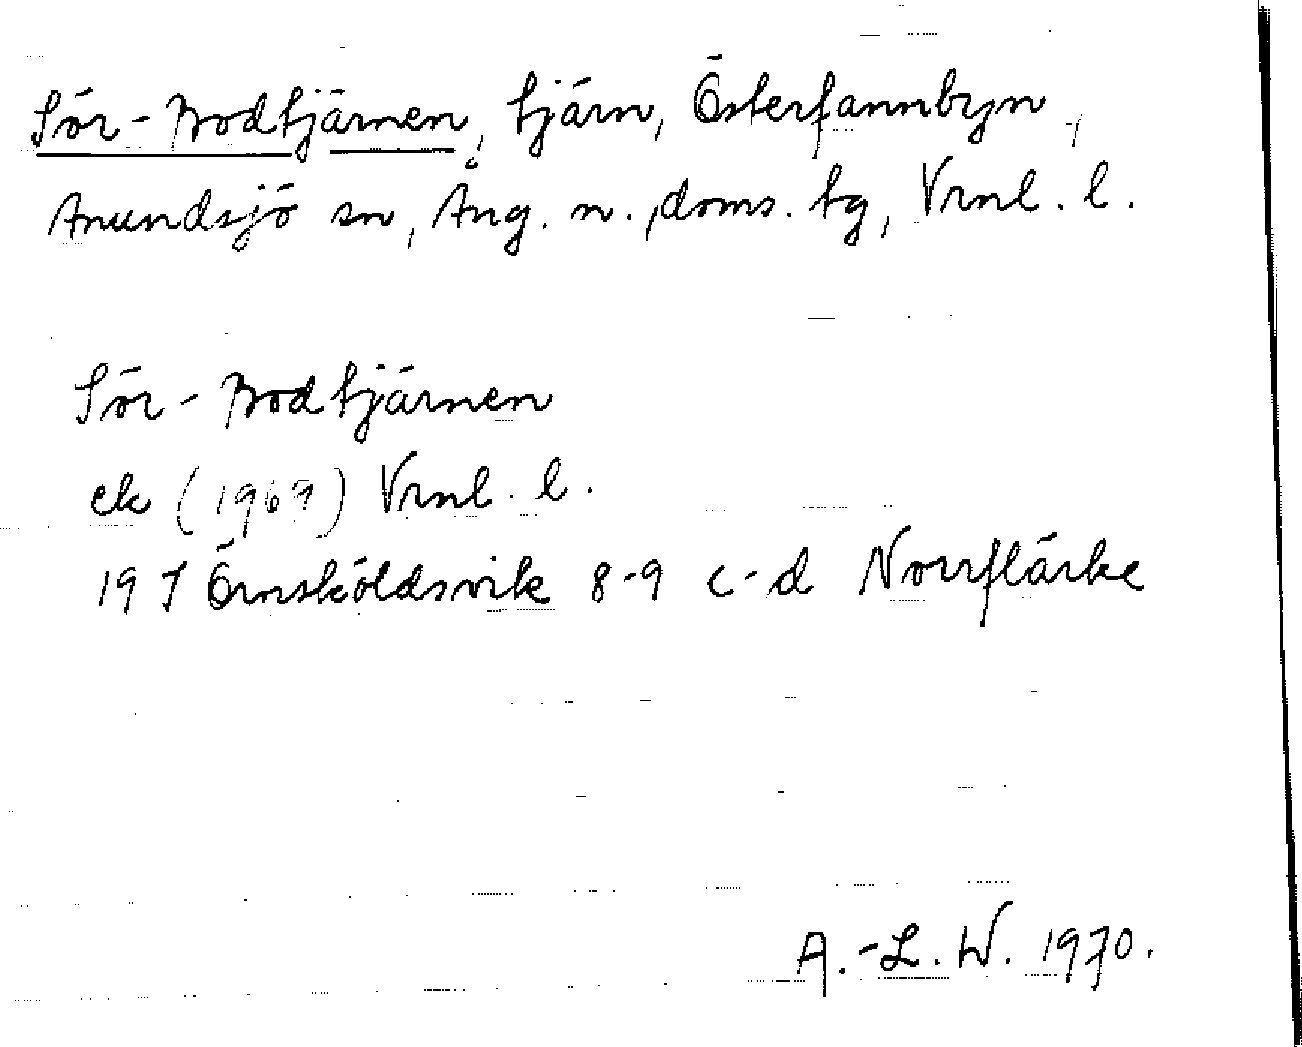 Sör-Bodtjärnen, tjärn, Österfannbyn,
Anundsjö sn, Ång. n. doms. tg, Vrnl. l.
Sör-Bodtjärnen
ek (1969) Vrnl. l.
19 J Örnsköldsvik 8-9 c-d Norrflärke
A.-L. W. 1970.